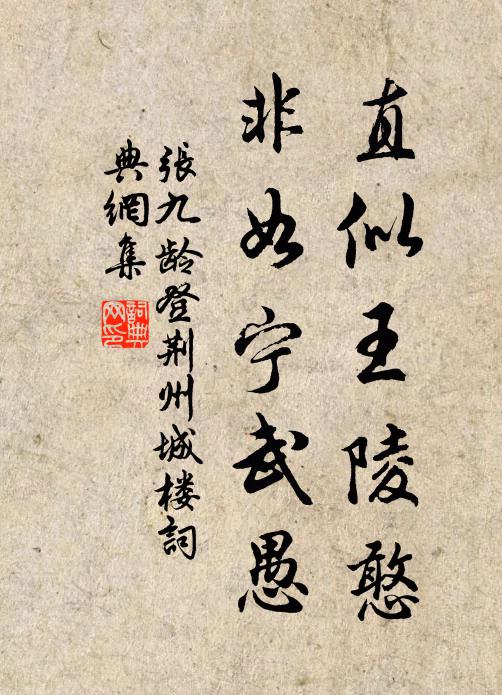 直似王陵憨
非如宁武愚
張九龄登荆州城楼詞
典網集
詞典
网印